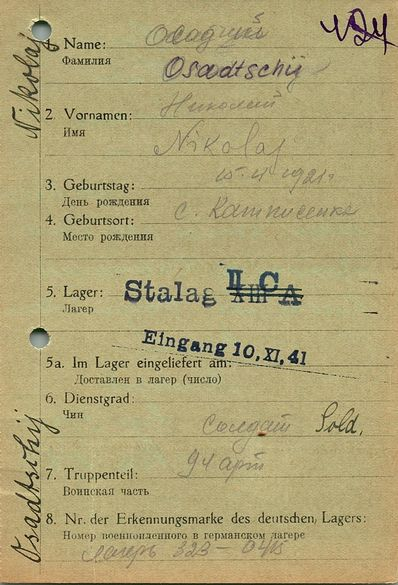 Nikolaj
1. Name: Осадчий
Фамилия Osadtschij
2. Vornamen: Николай
Имя Nikolaj
3. Geburtstag: 1921г
День рождения
4. Geburtsort: с.
Место рождения
II C
5. Lager: Stalag XIII A
Лагер
Eingang 10. XI. 41
5a. Im Lager eingeliefert am:
Доставлен в лагер (число)
6. Dienstgrad:
Чин солдат Sold.
94 арт
7. Truppenteil:
Воинская часть
8. Nr. der Erkennungsmarke des deutschen Lagers:
Номер военнопленного в германском лагере
Лагерь 323
Osadtschij